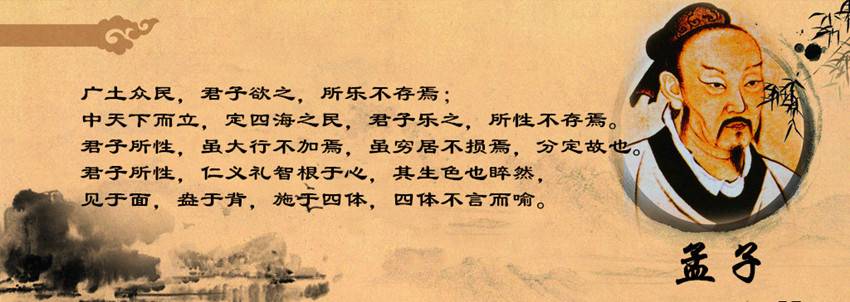 广土众民，君子欲之，所乐不存焉；
中天下而立，定四海之民，君子乐之，所性不存焉。
君子所性，虽大行不加焉，虽穷居不损焉，分定故也。
君子所性，仁义礼智根于心，其生色也睟然，
见于面，盎于背，施于四体，四体不言而喻。
孟子